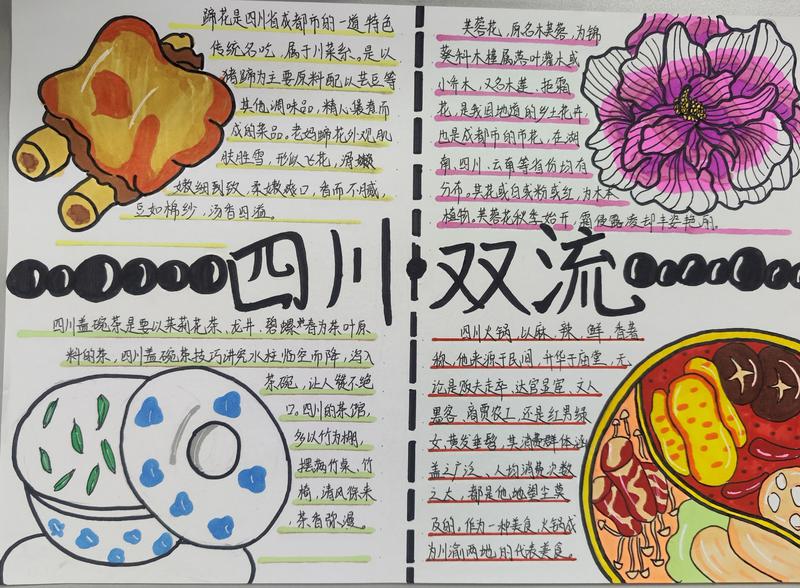 蹄花是四川省成都市的一道特色
传统名吃，属于川菜系。是以
猪蹄为主要原料配以芸豆等
其他调味品，精心煲煮而
成的菜品。老妈蹄花外观肌
肤胜雪，形似飞花，滑嫩
嫩细到致，柔嫩爽口，香而不腻，
豆如棉纱，汤香四溢。
芙蓉花，原名木芙蓉，为锦
葵科木槿属落叶灌木或
小乔木，又名木莲、拒霜
花，是我国地道的乡土花卉
也是成都市的市花，在湖
南、四川、云南等省份均有
分布，其花或白或粉或红，为木本
植物。芙蓉花秋季始开，霜侵露凌却丰姿艳丽。
四川 双流
四川盖碗茶是要以茉莉花茶、龙井、碧螺春为茶叶原
料的茶，四川盖碗茶技巧讲究水柱临空而降，泻入
茶碗，让人赞不绝
口。四川的茶馆，
多以竹为棚，
摆满竹桌、竹
椅，清风徐来
，茶香弥漫。
四川火锅，以麻、辣、鲜、香著
称，他来源于民间，升华于庙堂，无
论是贩夫走卒、达官显宦、文人
墨客、商贾农工，还是红男绿
女、黄发垂髫，其消费群体涵
盖之广泛、人均消费次数
之大，都是他地望尘莫
及的。作为一种美食，火锅成
为川渝两地的代表美食。